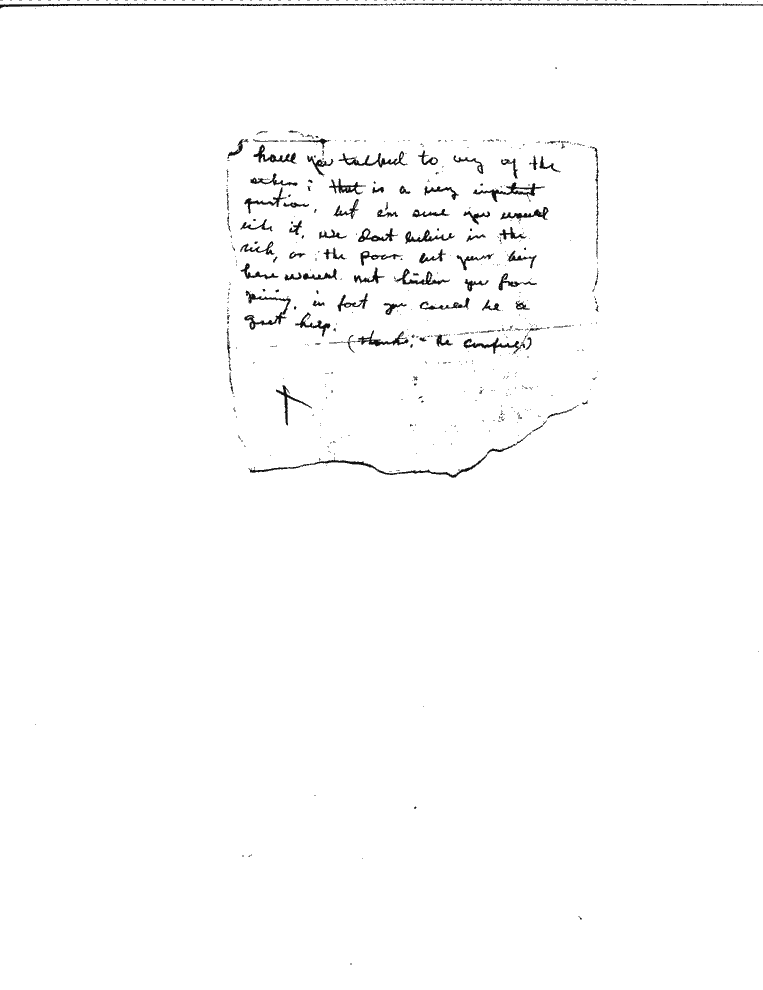 have you talked to any of the
others; that is a very important
question, but i'm sure you would
like it, we don't believe in the
rich, or the poor. but your being
here would not hinder you from
joining, in fact you could be a
great help.
(thanks, - he